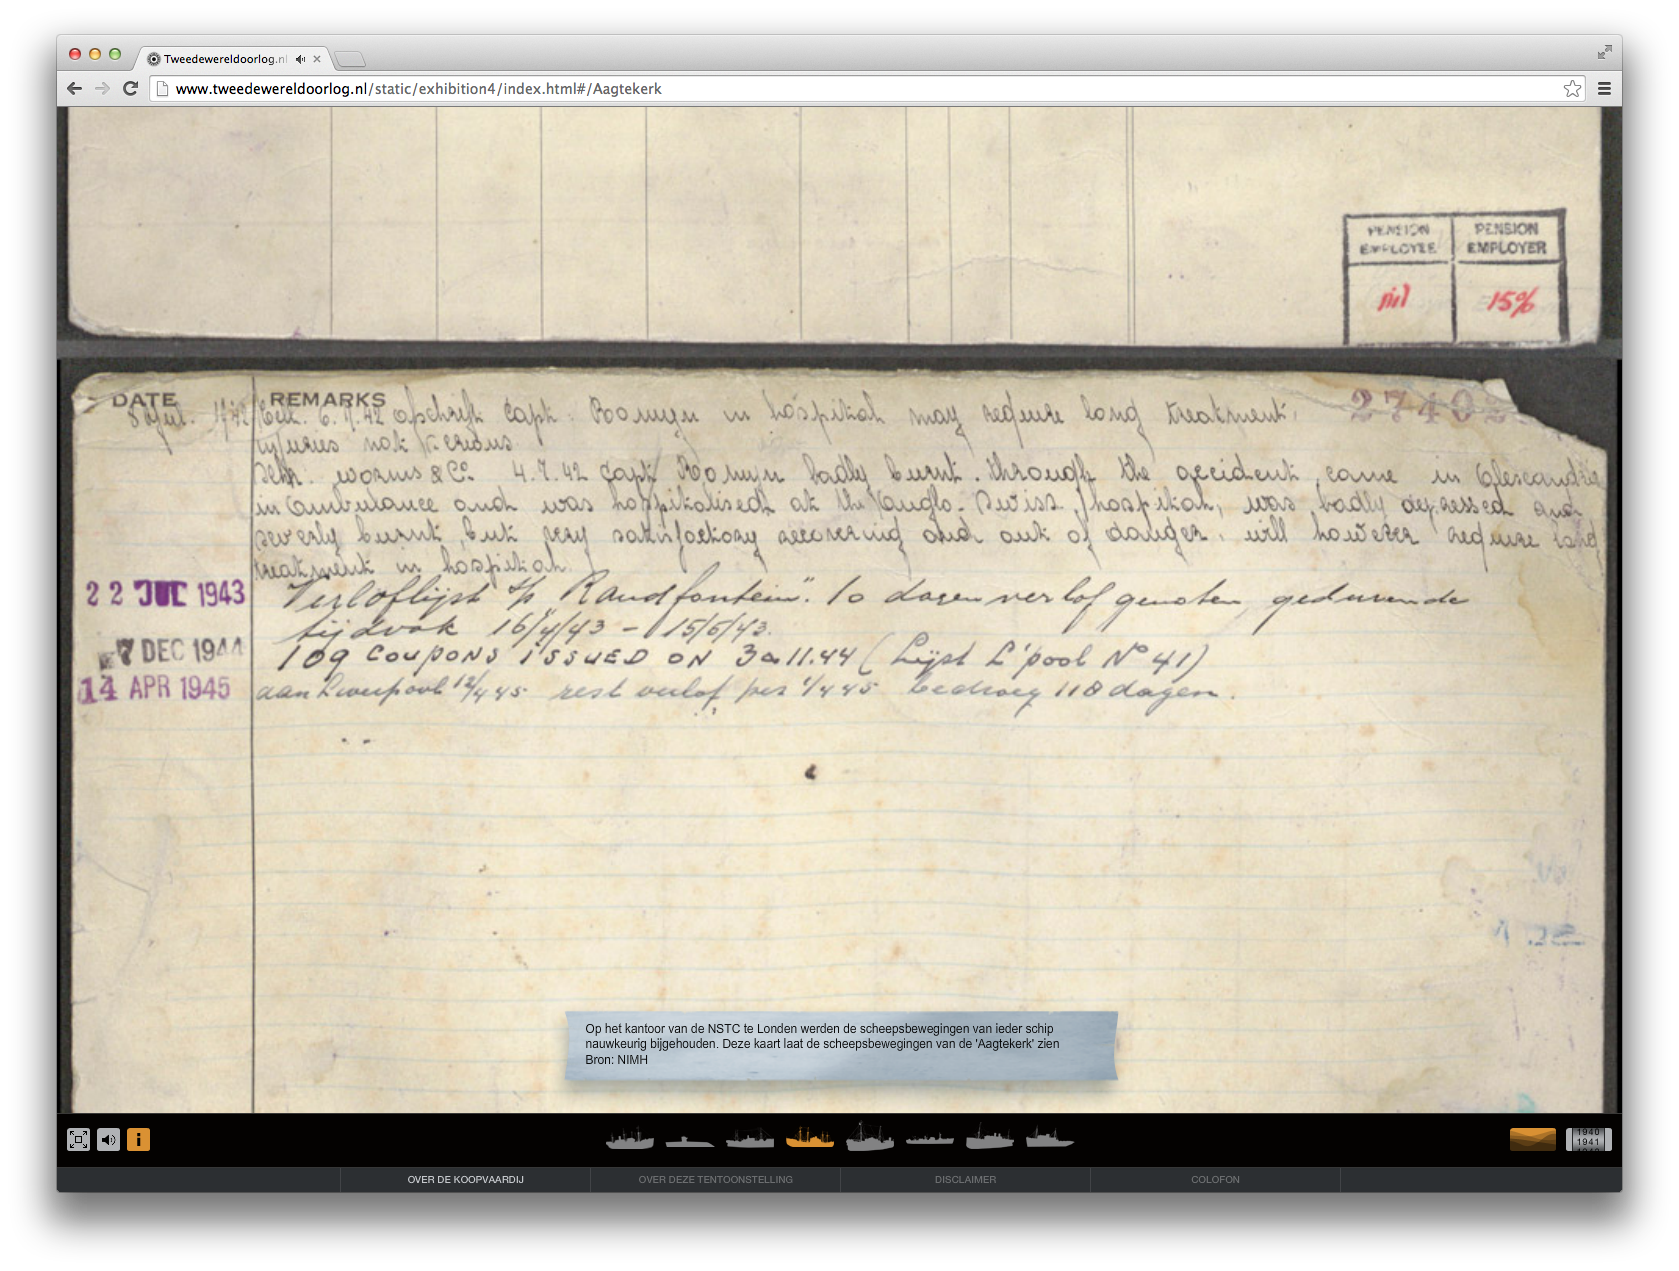 Tweedewereldoorlog.nl
www.tweedewereldoorlog.nl/static/exhibition4/index.html#/Aagtekerk
PENSION EMPLOYEE PENSION EMPLOYER
nil 15%
DATE REMARKS 2740
8 Jul. 1942 6.7.42 afschrift Capt. Romyn in hospital may require long treatment.
injuries not serious
worms & Co. 4.7.42 Capt Romyn badly burnt. through the accident, came in
in Ambulance and was hospitalised at the Anglo-Swiss hospital, was badly depressed and
severly burnt, but very satisfactory recovering and out of danger, will however require long
treatment in hospital.
22 JUL 1943 Verloflijst s/s "Randfontein". 10 dagen verlof genoten, gedurende
tijdvak 16/4/43 - 15/5/43.
7 DEC 1944 109 COUPONS ISSUED ON 30.11.44 (Lijst L'pool No 41)
14 APR 1945 aan Liverpool 12/4 45 rest verlof per 1/4 45 bedroeg 118 dagen.
Op het kantoor van de NSTC te Londen werden de scheepsbewegingen van ieder schip
nauwkeurig bijgehouden. Deze kaart laat de scheepsbewegingen van de 'Aagtekerk' zien
Bron: NIMH
i
1940
1941
OVER DE KOOPVAARDIJ OVER DEZE TENTOONSTELLING DISCLAIMER COLOFON